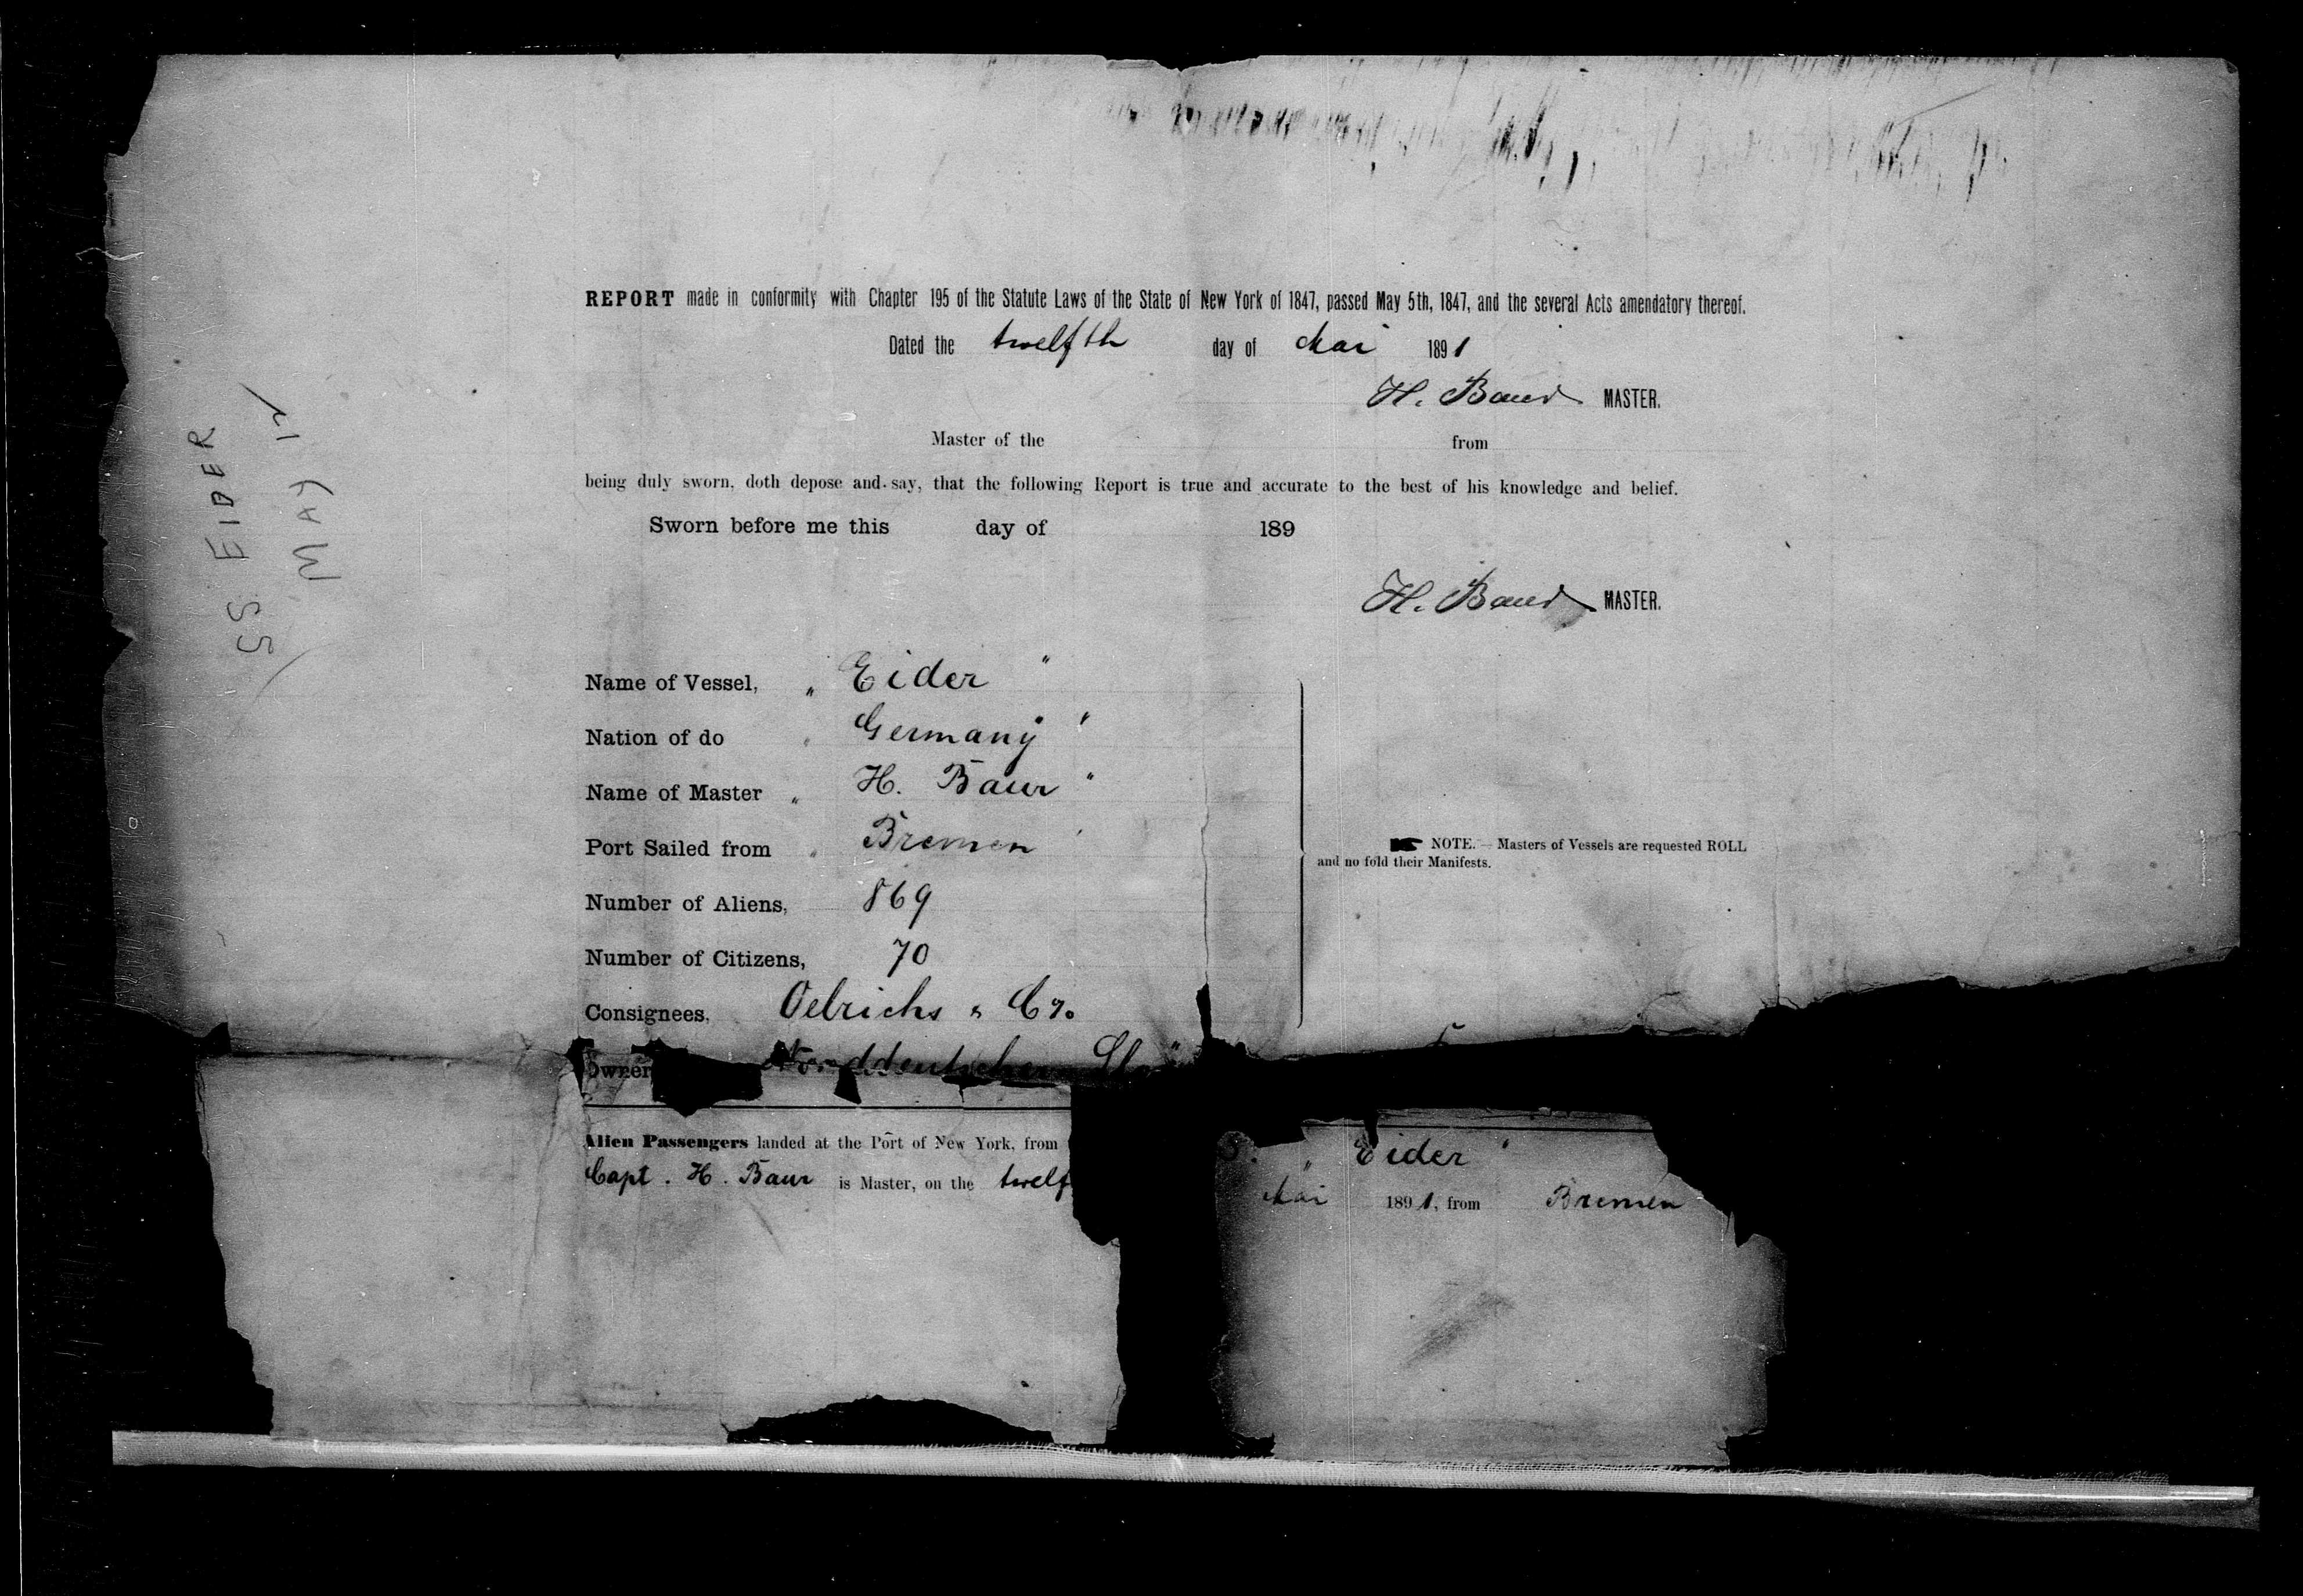 REPORT made in conformity with Chapter 195 of the Statute Laws of the State of New York of 1847, passed May 5th, 1847, and the several Acts amendatory thereof.
Dated the twelfth day of Mai 1891
H. Baur MASTER.
Master of the from
being duly sworn, doth depose and say, that the following Report is true and accurate to the best of his knowledge and belief.
Sworn before me this day of 189
H. Baur MASTER.
SS EIDER
MAY 12
Name of Vessel, „ Eider "
Nation of do „ Germany "
Name of Master „ H. Baur "
Port Sailed from „ Bremen "
Number of Aliens, 869
Number of Citizens, 70
Consignees, Oelrichs & Co
NOTE.— Masters of Vessels are requested ROLL
and no fold their Manifests.
Owner Norddeutscher
Alien Passengers landed at the Port of New York, from S. „ Eider "
Capt. H. Baur is Master, on the twelf Mai 1891, from Bremen